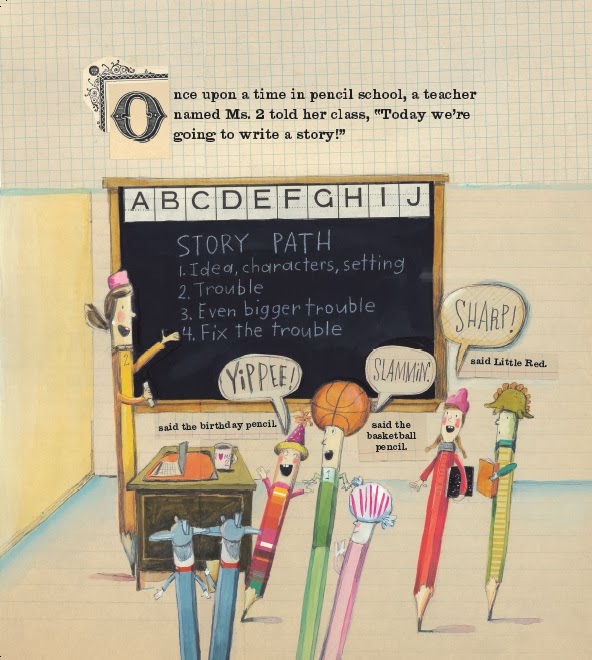 Once upon a time in pencil school, a teacher
named Ms. 2 told her class, “Today we’re
going to write a story!”
A B C D E F G H I J
STORY PATH
1. Idea, characters, setting
2. Trouble
3. Even bigger trouble
4. Fix the trouble
YiPPEE!
said the birthday pencil.
SLAMMiN.
said the
basketball
pencil.
SHARP!
said Little Red.
2
1